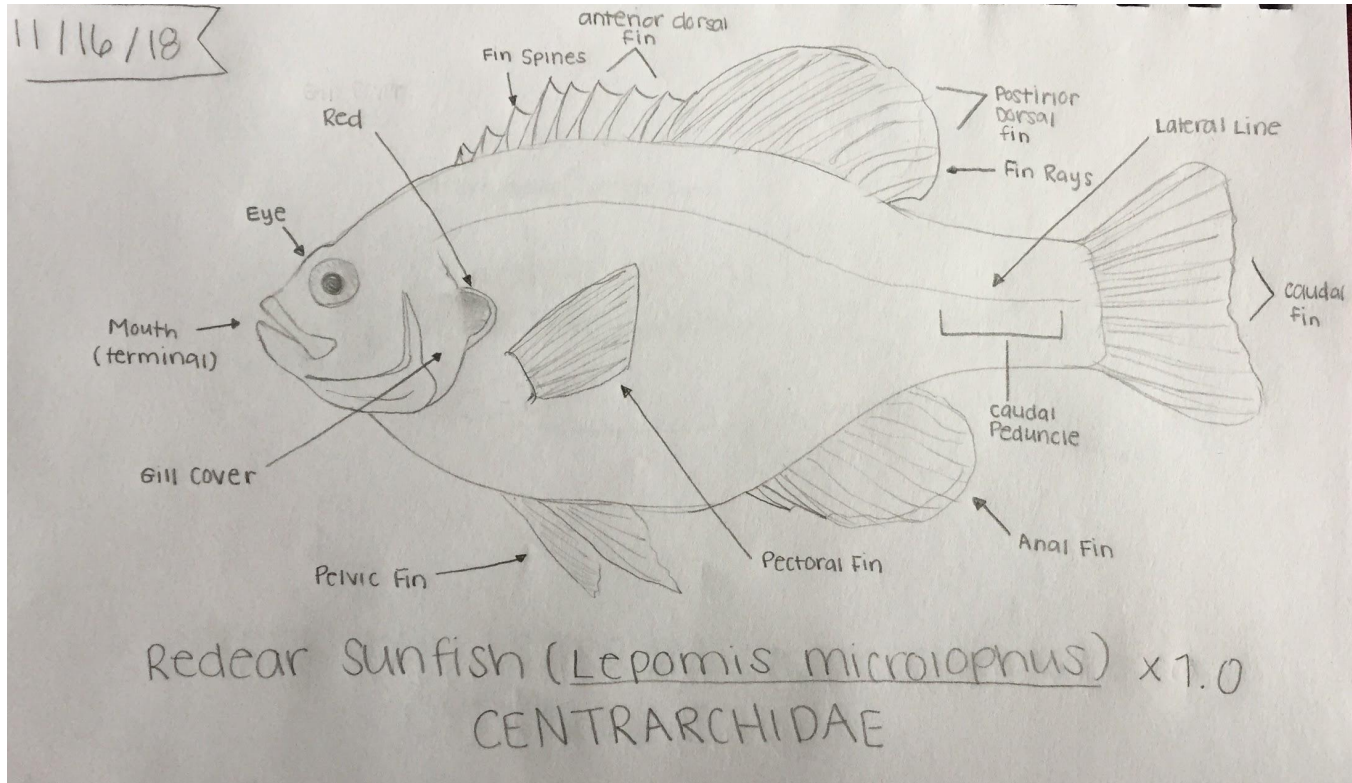 11/16/18
anterior dorsal
fin
Fin Spines
Red
Postirior
Dorsal
fin
Lateral Line
Fin Rays
Eye
Caudal
fin
Mouth
(terminal)
Caudal
Peduncle
Gill Cover
Anal Fin
Pectoral Fin
Pelvic Fin
Redear Sunfish (Lepomis microlophus) x1.0
CENTRARCHIDAE